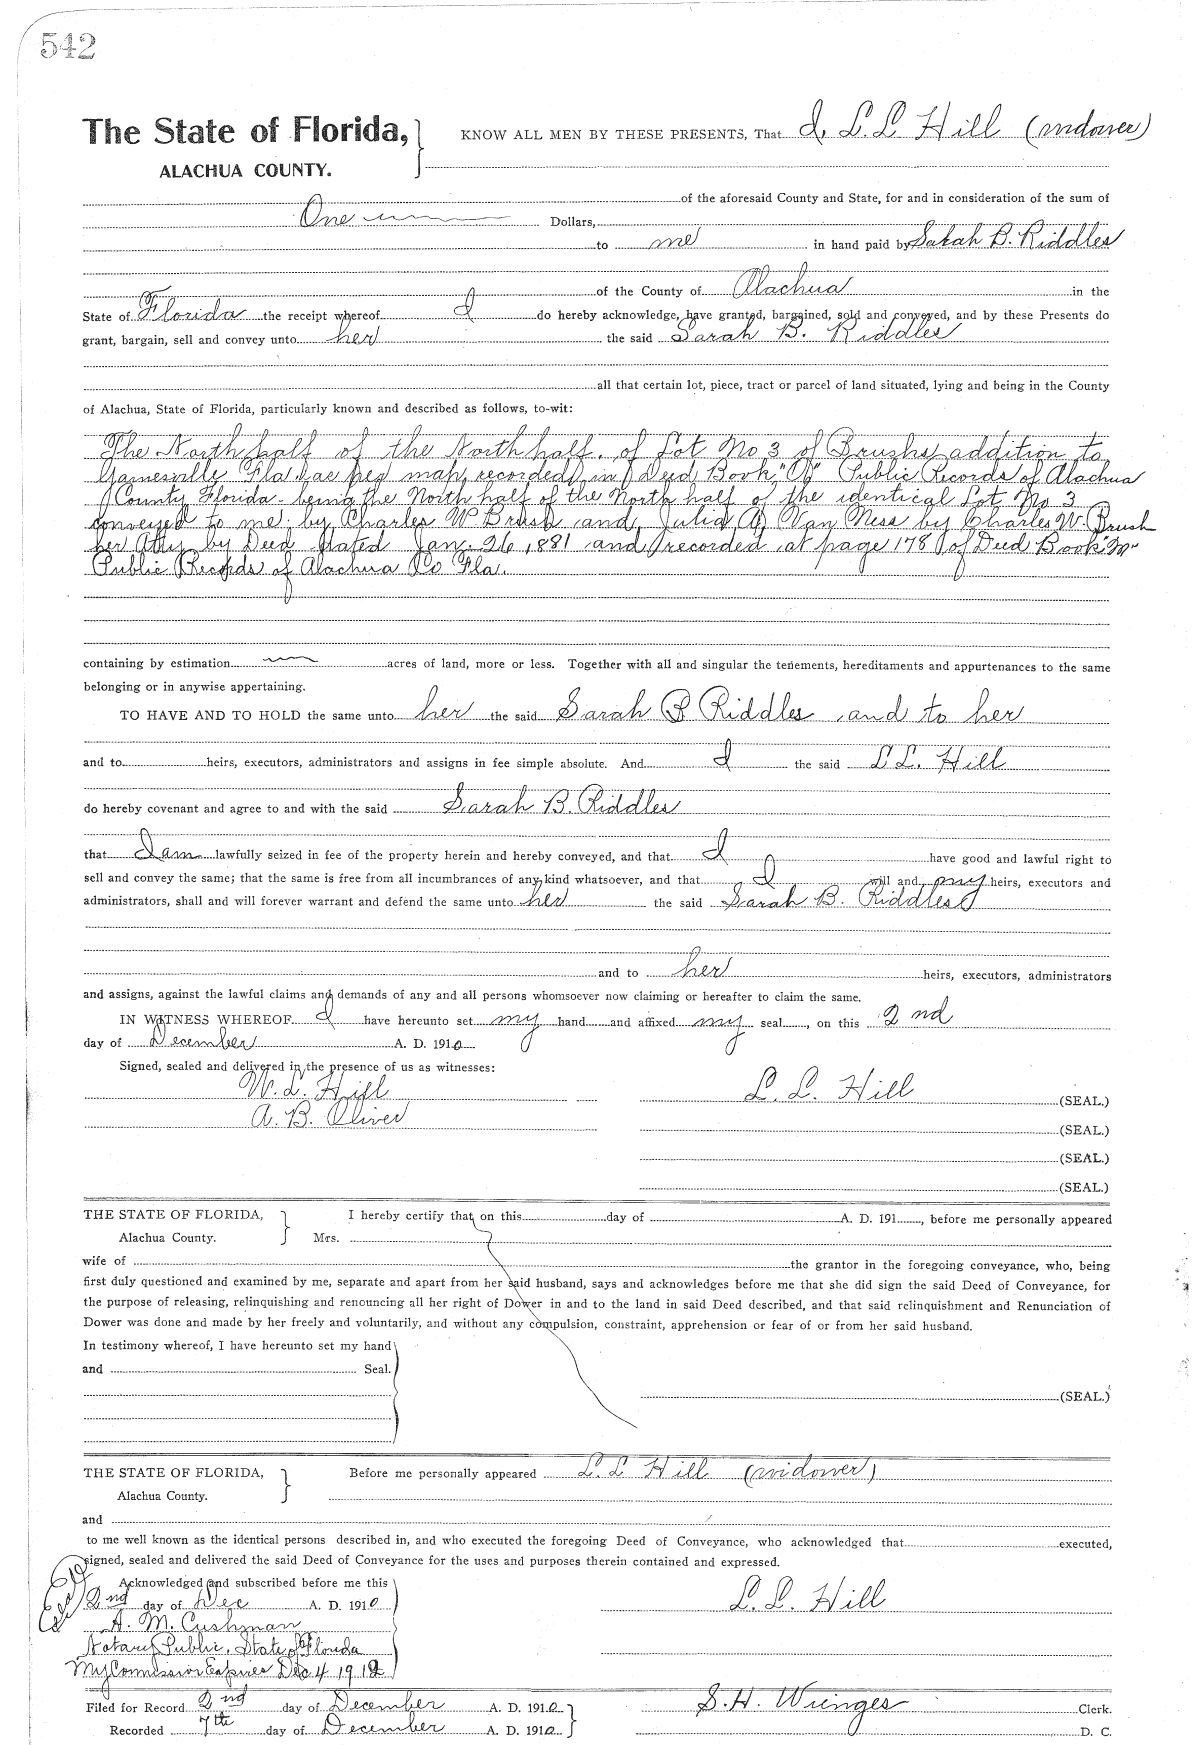 542
The State of Florida, KNOW ALL MEN BY THESE PRESENTS, That I, L. L. Hill (widower)
ALACHUA COUNTY.
of the aforesaid County and State, for and in consideration of the sum of
One Dollars,
to me in hand paid by Sarah B. Riddles
of the County of Alachua in the
State of Florida the receipt whereof I do hereby acknowledge, have granted, bargained, sold and conveyed, and by these Presents do
grant, bargain, sell and convey unto her the said Sarah B. Riddles
all that certain lot, piece, tract or parcel of land situated, lying and being in the County
of Alachua, State of Florida, particularly known and described as follows, to-wit:
The North half of the North half of Lot No 3 of Brushs addition to
Gainesville Fla. as per map recorded in Deed Book Public Records of Alachua
County Florida - being the North half of the North half of the identical Lot No 3
conveyed to me by Charles W. Brush and Julia A. Van Ness by Charles W. Brush
her Atty by Deed dated Jan. 26, 1881 and recorded at page 178 of Deed Book "M"
Public Records of Alachua Co Fla.
containing by estimation acres of land, more or less. Together with all and singular the tenements, hereditaments and appurtenances to the same
belonging or in anywise appertaining.
TO HAVE AND TO HOLD the same unto her the said Sarah B Riddles and to her
and to heirs, executors, administrators and assigns in fee simple absolute. And I the said L L. Hill
do hereby covenant and agree to and with the said Sarah B. Riddles
that I am lawfully seized in fee of the property herein and hereby conveyed, and that I have good and lawful right to
sell and convey the same; that the same is free from all incumbrances of any kind whatsoever, and that I will and my heirs, executors and
administrators, shall and will forever warrant and defend the same unto her the said Sarah B. Riddles
and to her heirs, executors, administrators
and assigns, against the lawful claims and demands of any and all persons whomsoever now claiming or hereafter to claim the same.
IN WITNESS WHEREOF I have hereunto set my hand and affixed my seal, on this 2nd
day of December A. D. 1910
Signed, sealed and delivered in the presence of us as witnesses:
W. L. Hill L. L. Hill (SEAL.)
A. B. Oliver (SEAL.)
(SEAL.)
(SEAL.)
THE STATE OF FLORIDA, I hereby certify that on this day of A. D. 191, before me personally appeared
Alachua County. Mrs.
wife of the grantor in the foregoing conveyance, who, being
first duly questioned and examined by me, separate and apart from her said husband, says and acknowledges before me that she did sign the said Deed of Conveyance, for
the purpose of releasing, relinquishing and renouncing all her right of Dower in and to the land in said Deed described, and that said relinquishment and Renunciation of
Dower was done and made by her freely and voluntarily, and without any compulsion, constraint, apprehension or fear of or from her said husband.
In testimony whereof, I have hereunto set my hand
and Seal.
(SEAL.)
THE STATE OF FLORIDA, Before me personally appeared L. L Hill (widower)
Alachua County.
and
to me well known as the identical persons described in, and who executed the foregoing Deed of Conveyance, who acknowledged that executed,
signed, sealed and delivered the said Deed of Conveyance for the uses and purposes therein contained and expressed.
Acknowledged and subscribed before me this
2nd day of Dec A. D. 1910 L. L. Hill
A. M. Cushman
Notary Public, State of Florida
My Commission Expires Dec 4 1912
Filed for Record 2nd day of December A. D. 1910 S. H. Wienges Clerk.
Recorded 7th day of December A. D. 1910 D. C.